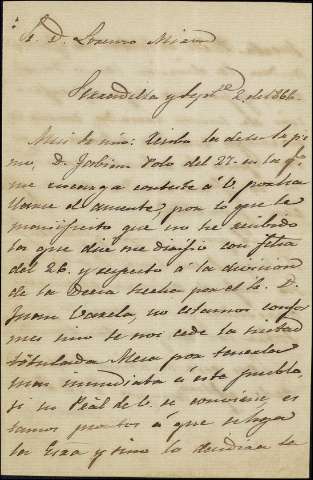 S. D. Lorenzo Miard
y Sept.re 2 de 1866.
Muy Sr. mio: Recibo la de su pri
mo, D. Joshim Polo del 27. en la q.e
me encarga conteste á V. por ha
llarse el ausente, por lo que le
manifiesto que no he recibido
la que dice me dirijió con fecha
del 26. y respecto á la division
de la Decra hecha por el S. D.
Juan Varela, no estamos confor
mes sino se nos cede la mitad
titulada Mesa por tenerla
mas inmediata á este pueblo,
si su Real de V. se conviene es
tamos prontos á que se haga
la y sino lo decidira la